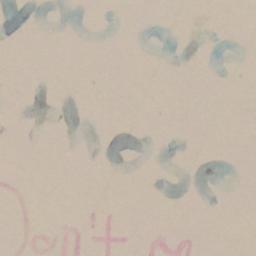 you are
those
Don't